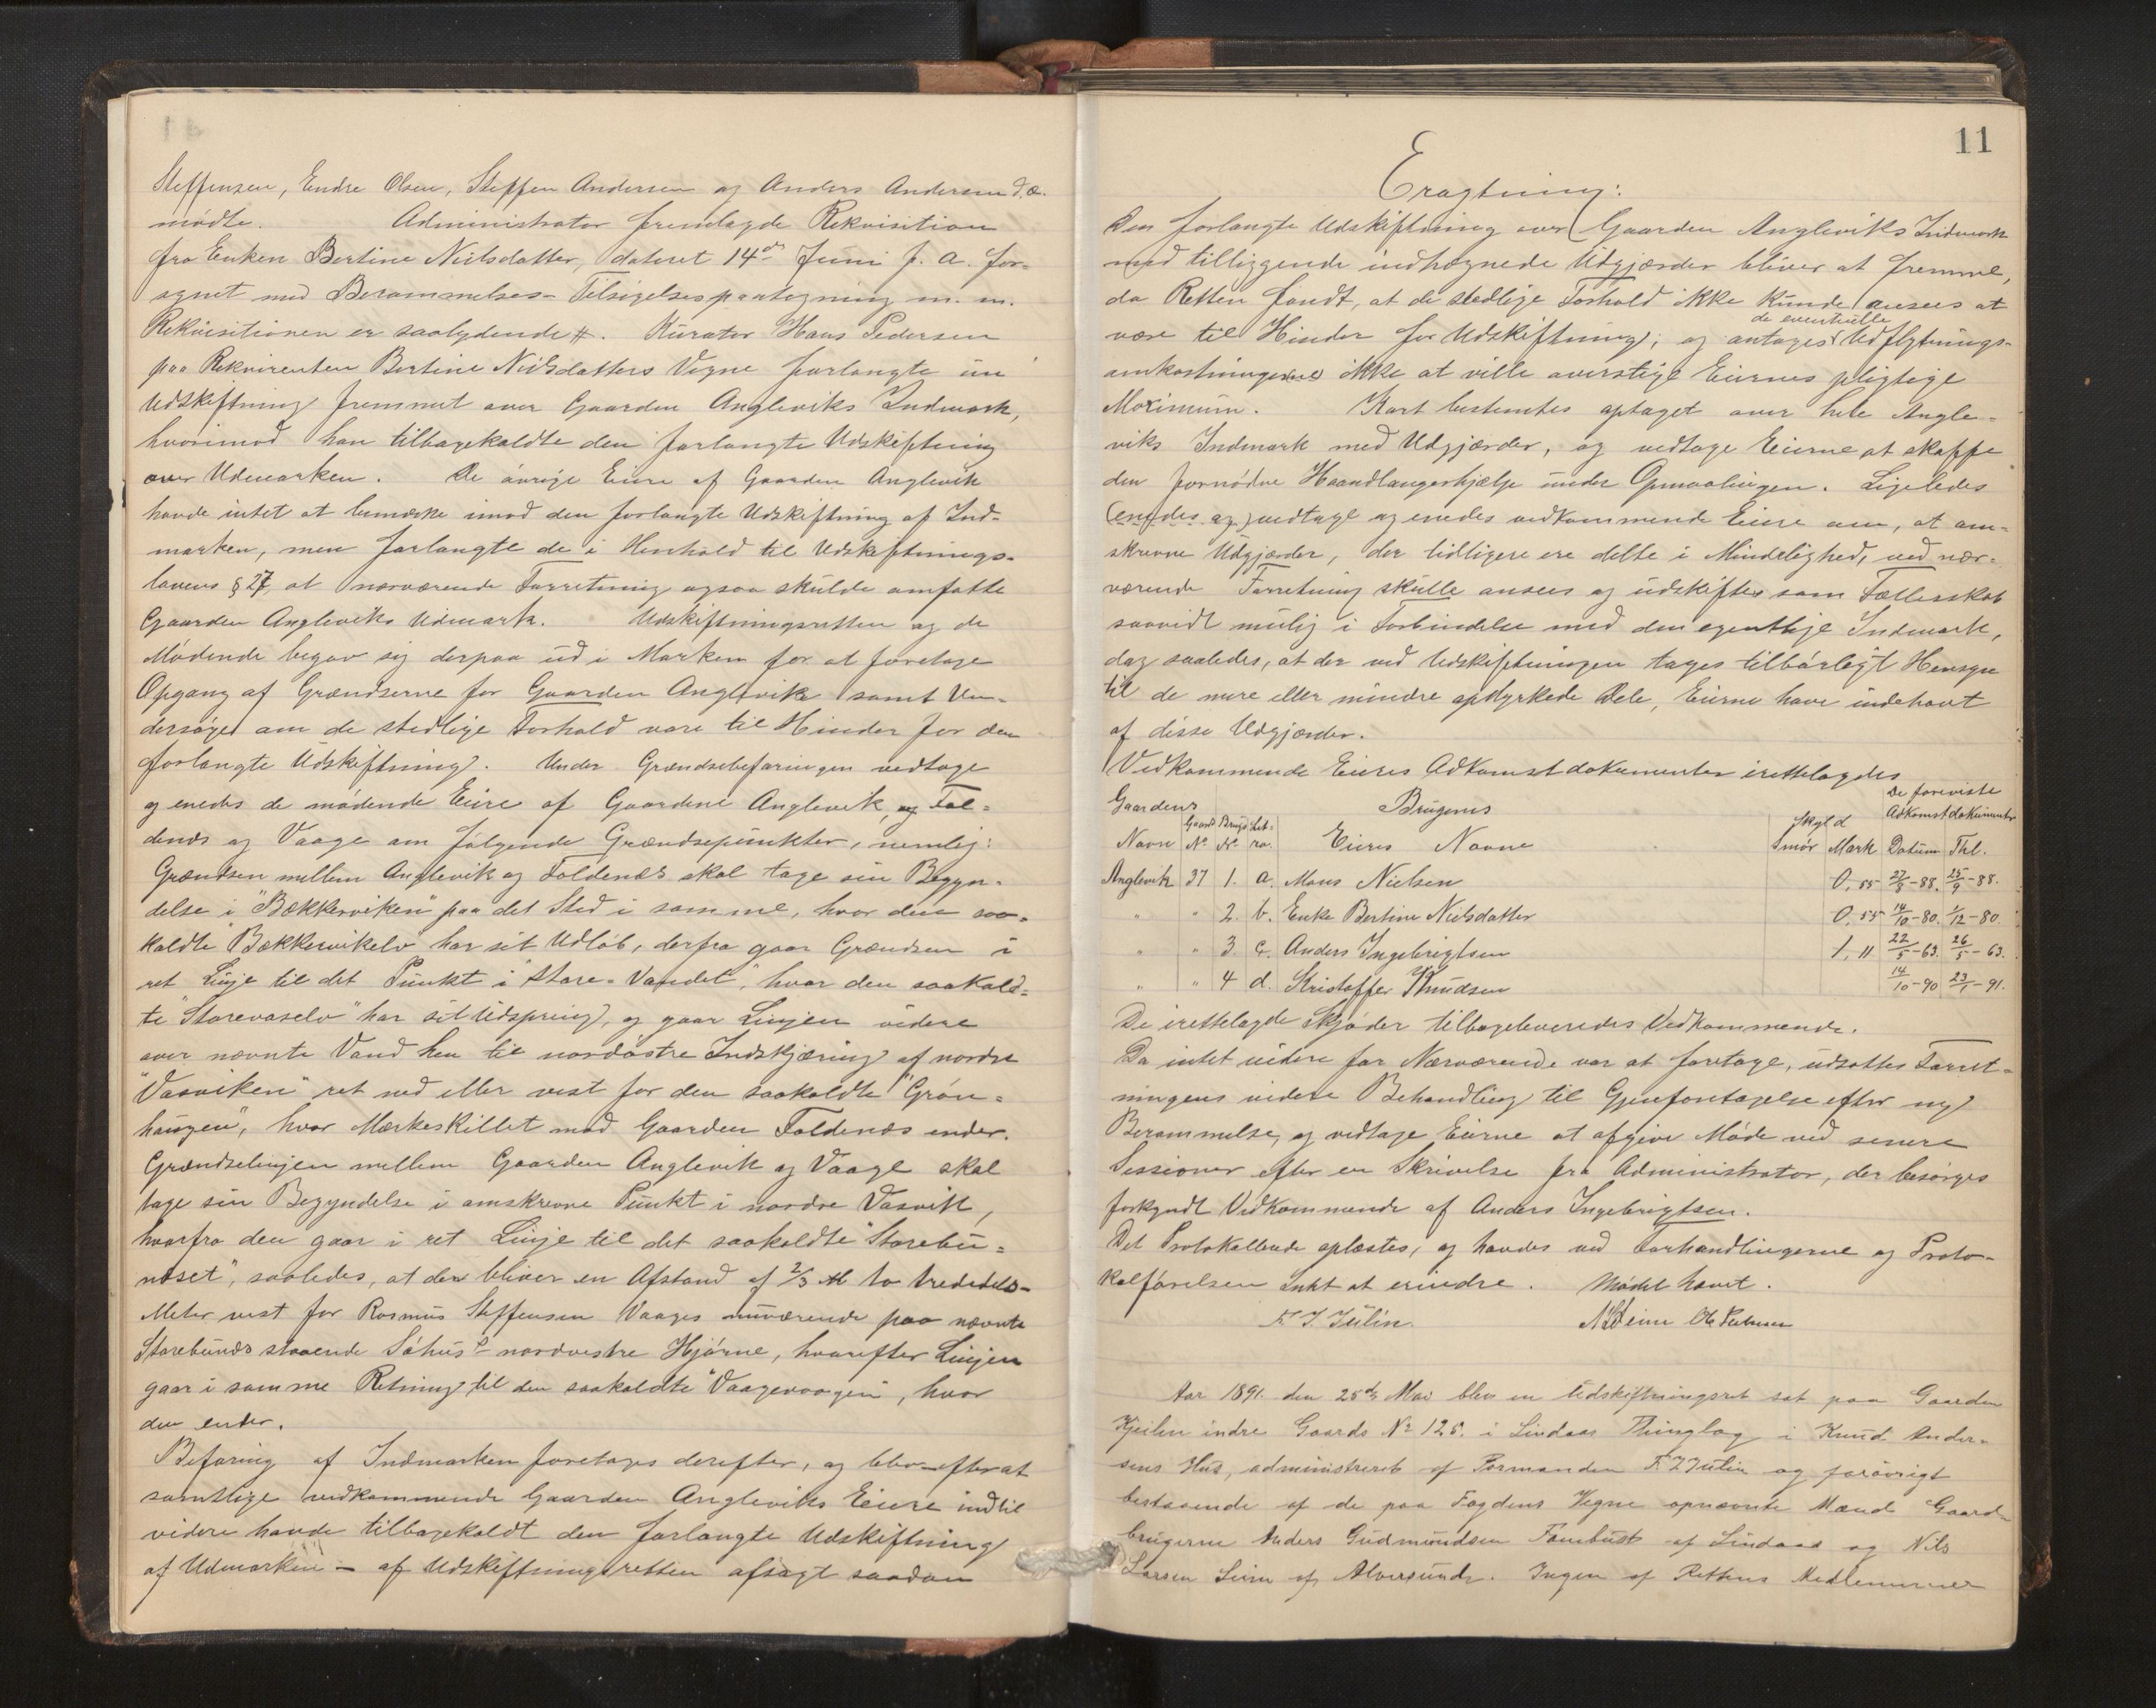 Steffensen, Endre Olsen, Steffen Andersen og Anders Andersen d.æ.
mødte. Administrator fremlagde Rekvisition
fra Enken Bertine Nielsdatter, dateret 14de Juni f. a. for-
synet med Berammelses- Tilsigelsespaategning m. m.
Rekvisitionen er saalydende #. Kurator Hans Pedersen
paa Rekvirenten Bertine Nilsdatters Vegne forlangte nu
Udskiftning fremmet over Gaarden Angleviks Indmark,
hvorimod han tilbagekaldte den forlangte Udskiftning
over Udmarken. De øvrige Eiere af Gaarden Anglevik
havde intet at bemærke imod den forlangte Udskiftning af Ind-
marken, men forlangte de i Henhold til Udskiftnings-
lovens § 27, at nærværende Forretning ogsaa skulde omfatte
Gaarden Angleviks Udmark. Udskiftningsretten og de
Mødende begav sig derpaa ud i Marken for at foretage
Opgang af Grændserne for Gaarden Anglevik samt Un-
dersøge om de stedlige Forhold vare til Hinder for den
forlangte Udskiftning. Under Grændsebefaringen vedtoge
og enedes de mødende Eiere af Gaardene Anglevik, og Fol-
denes og Vaage om følgende Grændsepunkter, nemlig:
Grændsen mellem Anglevik og Foldenes skal tage sin Begyn-
delse i "Bækkerviken" paa det Sted i samme, hvor den saa-
kaldte "Bækkervikelv" har sit Udløb, derfra gaar Grændsen i
ret Linje til det Punkt i "Store-Vandet", hvor den saakald-
te "Storevaselv" har sit Udspring, og gaar Linjen videre
over nævnte Vand hen til nordøstre Indskjæring af nordre
"Vasviken" ret ned eller vest for den saakaldte "Grøn-
haugen", hvor Mærkeskillet mod Gaarden Foldenes ender.
Grændselinjen mellem Gaarden Anglevik og Vaage skal
tage sin Begyndelse i omskrevne Punkt i nordre Vasvik,
hvorfra den gaar i ret Linje til det saakaldte "Storebu-
neset", saaledes, at der bliver en Afstand af 2/3 M to trediedels-
Meter vest for Rasmus Steffensen Vaages nuværende paa nævnte
Storebunes staaende Søhus's nordvestre Hjørne, hvorefter Linjen
gaar i samme Retning til den saakaldte "Vaagevaagen", hvor
den ender.
Befaring af Indmarken foretages derefter, og blev efterat
samtlige vedkommende Gaarden Angleviks Eiere indtil
videre havde tilbagekaldt den forlangte Udskiftning
af Udmarken – af Udskiftningsretten afsagt saadan
11
Eragtning:
Den forlangte Udskiftning over Gaarden Angleviks Indmark
med tilliggende indhegnede Udgjærder bliver at fremme,
da Retten fandt, at de stedlige Forhold ikke kunde ansees at
være til Hinder for Udskiftning; og antages de eventuelle Udflytnings-
omkostningerne ikke at ville overstige Eiernes pligtige
Maximum. Kart bestemtes optaget over hele Angle-
viks Indmark med Udgjærder, og vedtage Eierne at skaffe
den fornødne Haandlangerhjælp under Opmaalingen. Ligeledes
(enedes og) vedtage og enedes vedkommende Eiere om, at om-
skrevne Udgjærder, der tidligere ere delte i Mindelighed, ved nær-
værende Forretning skulle ansees og udskiftes som Fællesskab
saavidt mulig i Forbindelse med den egentlige Indmark,
dog saaledes, at der ved Udskiftningen tages tilbørligt Hensyn
til de mere eller mindre opdyrkede Dele, Eierne have indehavt
af disse Udgjærder.
Vedkommende Eieres Adkomstdokumenter irettelagdes
Gaardens Brugenes De foreviste
Skyld Adkomstdokumenter
Navn Gaard No Brugs No Litra. Eieres Navne Smør Mark Datum Thl.
Anglevik 37 1. a. Mons Nielsen 0,55 27/8-88. 25/9-88.
" " 2. b. Enke Bertine Nielsdatter 0,55 14/10-80. 1/12-80.
" " 3 c. Anders Ingebrigtsen 1,11 22/5-63. 26/5-63.
" " 4 d. Kristoffer Knudsen 14/10-90 23/1-91.
De irettelagde Skjøder tilbageleveredes Vedkommende.
Da intet videre for Nærværende var at foretage, udsattes Forret-
ningens videre Behandling til Gjenforetagelse efter ny
Berammelse, og vedtage Eierne at afgive Møde ved senere
Sessioner efter en Skrivelse fra Administrator, der besørges
forkyndt Vedkommende af Anders Ingebrigtsen.
Det Protokollerede oplæstes, og havdes ved Forhandlingerne og Proto-
kolførelsen Intet at erindre. Mødet hævet.
F. Z. Julin.
Aar 1891. den 25de Mai blev en Udskiftningsret sat paa Gaarden
Kjeilen indre Gaards No 125. i Lindaas Thinglag i Knud Ander-
sens Hus, administreret af Formanden F. Z Julin og forøvrigt
bestaaende af de paa Fogdens Vegne opnævnte Mænd Gaard-
brugerne Anders Gudmundsen Fanebust af Lindaas og Nils
Larsen Seim af Alversund. Ingen af Rettens Medlemmer